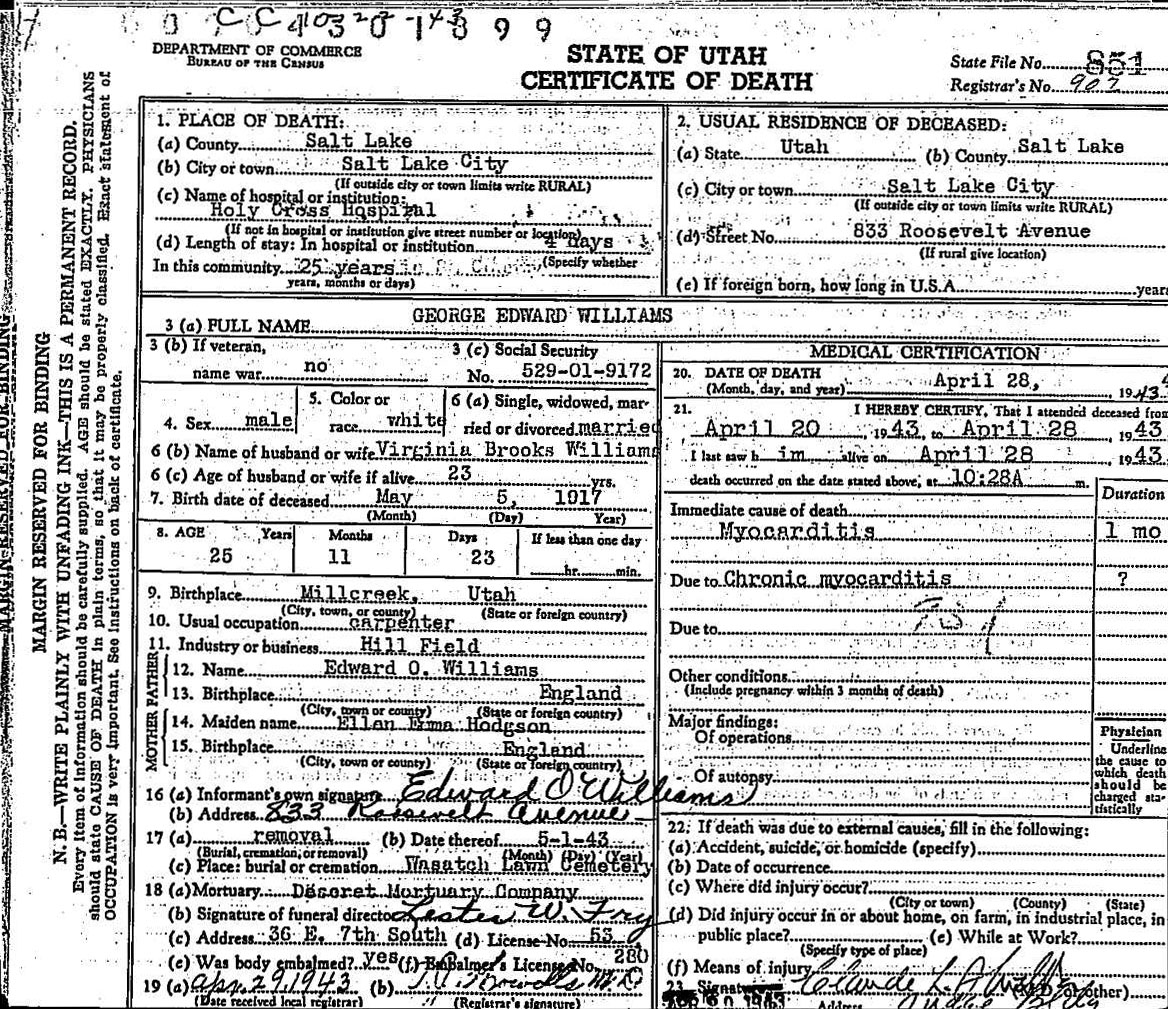 DEPARTMENT OF COMMERCE
BUREAU OF THE CENSUS
STATE OF UTAH
CERTIFICATE OF DEATH
State File No. 851
Registrar's No. 907
MARGIN RESERVED FOR BINDING
N. B.—WRITE PLAINLY WITH UNFADING INK—THIS IS A PERMANENT RECORD.
Every item of information should be carefully supplied. AGE should be stated EXACTLY. PHYSICIANS
should state CAUSE OF DEATH in plain terms, so that it may be properly classified. Exact statement of
OCCUPATION is very important. See instructions on back of certificate.
1. PLACE OF DEATH:
(a) County Salt Lake
(b) City or town Salt Lake City
(If outside city or town limits write RURAL)
(c) Name of hospital or institution:
Holy Cross Hospital
(If not in hospital or institution give street number or location)
(d) Length of stay: In hospital or institution 4 days
(Specify whether
In this community 25 years
years, months or days)
2. USUAL RESIDENCE OF DECEASED:
(a) State Utah (b) County Salt Lake
(c) City or town Salt Lake City
(If outside city or town limits write RURAL)
(d) Street No. 833 Roosevelt Avenue
(If rural give location)
(e) If foreign born, how long in U.S.A. years
3 (a) FULL NAME GEORGE EDWARD WILLIAMS
3 (b) If veteran,
name war no
3 (c) Social Security
No. 529-01-9172
4. Sex male
5. Color or
race white
6 (a) Single, widowed, mar-
ried or divorced married
6 (b) Name of husband or wife Virginia Brooks Williams
6 (c) Age of husband or wife if alive 23 yrs.
7. Birth date of deceased May 5, 1917
(Month) (Day) Year)
8. AGE Years Months Days If less than one day
25 11 23 hr. min.
9. Birthplace Millcreek, Utah
(City, town, or county) (State or foreign country)
10. Usual occupation carpenter
11. Industry or business Hill Field
FATHER
12. Name Edward O. Williams
13. Birthplace England
(City, town or county) (State or foreign country)
MOTHER
14. Maiden name Ellen Emma Hodgson
15. Birthplace England
(City, town or county) (State or foreign country)
16 (a) Informant's own signature Edward O Williams
(b) Address 833 Roosevelt Avenue
17 (a) removal (b) Date thereof 5-1-43
(Burial, cremation, or removal) (Month) (Day) (Year)
(c) Place: burial or cremation Wasatch Lawn Cemetery
18 (a) Mortuary Deseret Mortuary Company
(b) Signature of funeral director Lester W. Fry
(c) Address 36 E. 7th South (d) License No. 53
(e) Was body embalmed? yes (f) Embalmer's License No. 280
19 (a) Apr. 29 1943 (b) M.D.
(Date received local registrar) (Registrar's signature)
MEDICAL CERTIFICATION
20. DATE OF DEATH
(Month, day, and year) April 28, 1943
21. I HEREBY CERTIFY, That I attended deceased from
April 20, 1943, to April 28, 1943
I last saw him alive on April 28, 1943.
death occurred on the date stated above, at 10:28A m.
Duration
Immediate cause of death
Myocarditis 1 mo
Due to Chronic myocarditis ?
Due to
Other conditions
(Include pregnancy within 3 months of death)
Major findings:
Of operations
Of autopsy
Physician
Underline
the cause to
which death
should be
charged sta-
tistically
22. If death was due to external causes, fill in the following:
(a) Accident, suicide, or homicide (specify)
(b) Date of occurrence
(c) Where did injury occur?
(City or town) (County) (State)
(d) Did injury occur in or about home, on farm, in industrial place, in
public place? (e) While at Work?
(Specify type of place)
(f) Means of injury
23. Signature Claude L. (M.D. or other)
Address